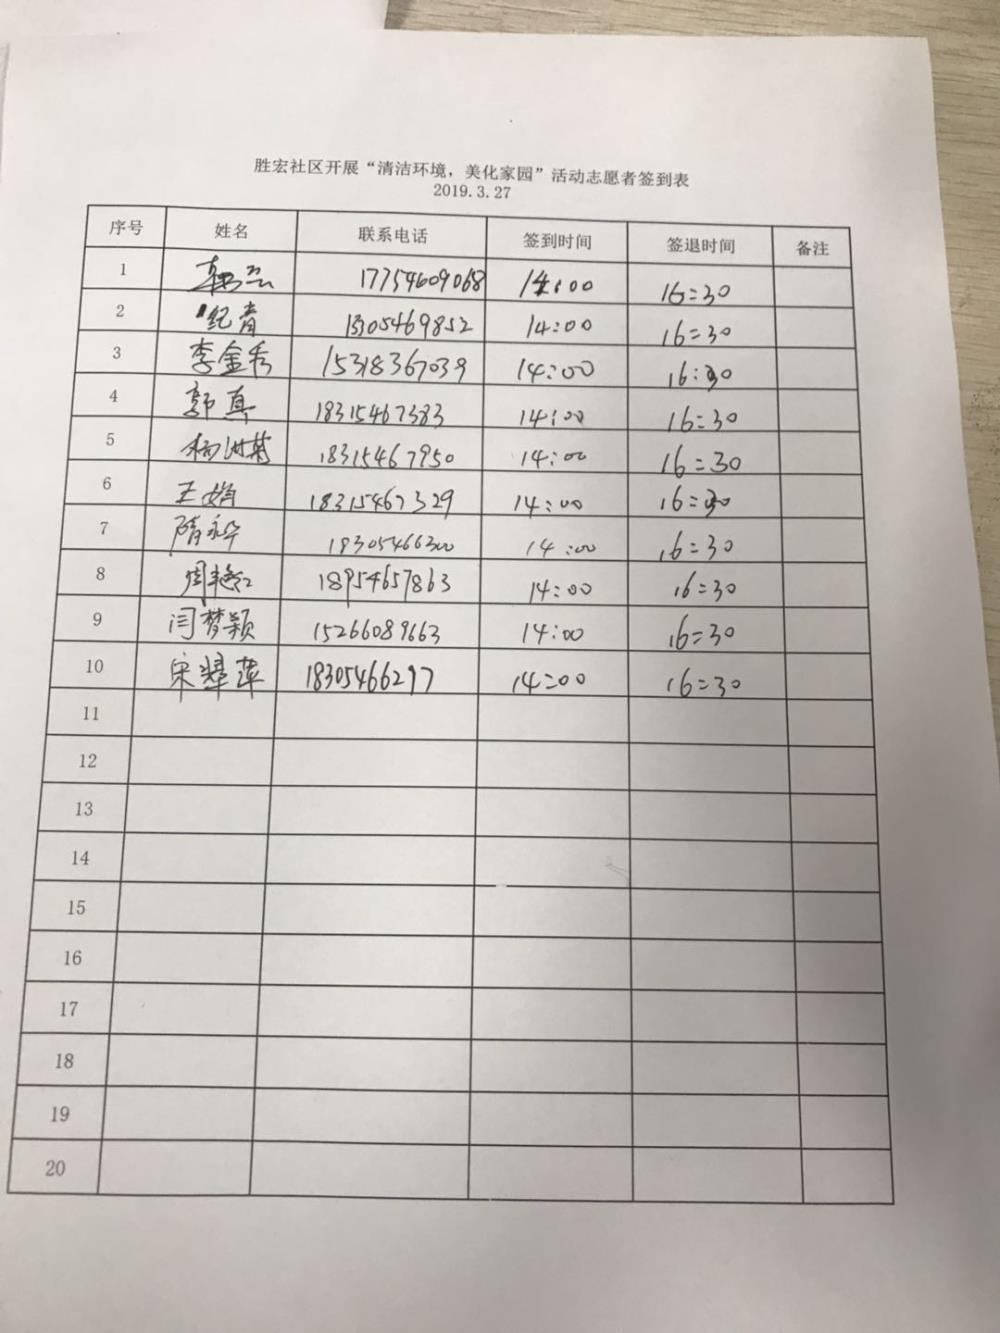 胜宏社区开展“清洁环境，美化家园”活动志愿者签到表
2019.3.27
序号 姓名 联系电话 签到时间 签退时间 备注
1 韩云 17754609068 14:00 16:30
2 纪青 13305469852 14:00 16:30
3 李金秀 15318367039 14:00 16:30
4 郭真 18315467383 14:00 16:30
5 杨洪菊 18315467950 14:00 16:30
6 王娟 18315467329 14:00 16:30
7 隋永华 18305466300 14:00 16:30
8 周艳红 18954657863 14:00 16:30
9 闫梦颖 15266089663 14:00 16:30
10 宋翠萍 18305466297 14:00 16:30
11
12
13
14
15
16
17
18
19
20